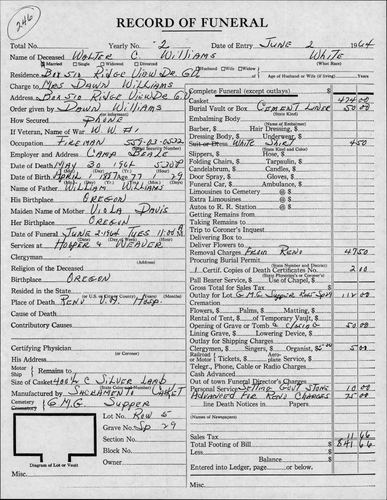 246
RECORD OF FUNERAL
Total No. Yearly No. 2 Date of Entry JUNE 2 1964
Name of Deceased WALTER C WILLIAMS WHITE
Married Single Widowed Divorced (What Race)
Residence BOX 510 RIDGE VIEW DR. G.V. Husband Wife Widow
Age of Husband or Wife (if living) Years
Charge to MRS DAWN WILLIAMS
Address BOX 510 RIDGE VIEW DR G.V.
Order given by DAWN WILLIAMS
How Secured PHONE
If Veteran, Name of War W.W. #1
Occupation FIREMAN
Employer and Address CAMP BEALE
Date of Death MAY 30 1964
Date of Birth APRIL 1
Name of Father WILLIAM WILLIAMS
His Birthplace OREGON
Maiden Name of Mother VIOLA DAVIS
Her Birthplace OREGON
Date of Funeral JUNE 2-1964 TUES 11:00 A.M.
Services at HOOPER & WEAVER
Clergyman
(Address)
Religion of the Deceased
Birthplace OREGON
Resided in the State
Place of Death RENO V.A. HOSP.
Cause of Death
Contributory Causes
Certifying Physician
(or Coroner)
His Address
Motor Ship Remains to
Size of Casket SILVER LAMB
Manufactured by SACRAMENTO CASKET
Cemetery G.M.G. SUPPER
Lot No. ROW 5
Grave No. SP 29
Section No.
Block No.
Owner
Diagram of Lot or Vault
Misc.
Complete Funeral (except outlays) $
Casket 424.00
Burial Vault or Box CEMENT LINER 50.00
(State Kind)
Embalming Body
(Name of Embalmer)
Barber, $ Hair Dressing, $
Dressing Body, $ Underwear, $
Suit or Dress WHITE SHIRT 4 50
(State Kind and Color)
Slippers, $ Hose, $
Folding Chairs, $ Tarpaulin, $
Candelabrum, $ Candles, $
Door Spray, $ Gloves, $
Funeral Car, $ Ambulance, $
Limousines to Cemetery @ $
Extra Limousines @ $
Autos to R. R. Station @ $
Getting Remains from
Taking Remains to
Trip to Coroner's Inquest
Delivering Box to
Deliver Flowers to
Removal Charges FROM RENO 47 50
Procuring Burial Permit
(State Number and District)
1 Certif. Copies of Death Certificates No. 2 10
Pall Bearer Service $ Use of Chapel, $
Gross Total for Sales Tax $
Outlay for Lot G.M.G SUPPER
Cremation
Flowers, $ Palms, $ Matting, $
Rental of Tent, $ of Temporary Vault, $
Opening of Grave or Tomb 50 00
Outlay for Shipping Charges
Clergymen, $ Singers, $ Organist, $ 5 00
Railroad or Motor Tickets, $ Aeroplane Service, $
Telegr., Phone, Cable or Radio Charges
Cash Advanced
Out of town Funeral Director's Charges
Personal Service SETTING GOVT STONE 10 00
ADVANCED FOR RENO CHARGES
line Death Notices in Papers
(Names of Newspapers)
Sales Tax 11 66
Total Footing of Bill $ 841 66
Less $
Balance $
Entered into Ledger, page or below.
Misc.